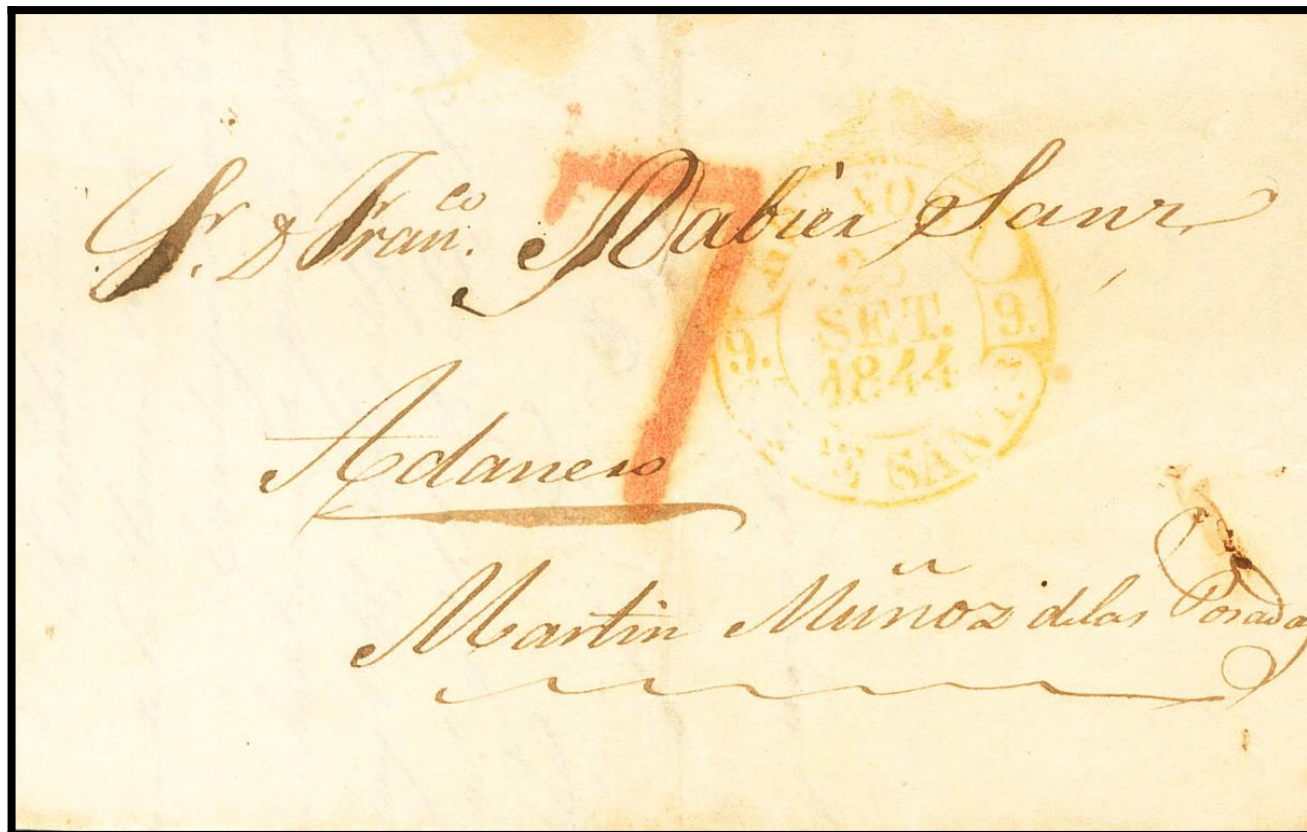 Sr. D Fran.co Xabier Sanz
7
9. 9.
SET.
1844
Adanero
Martin Muñoz de las Posadas